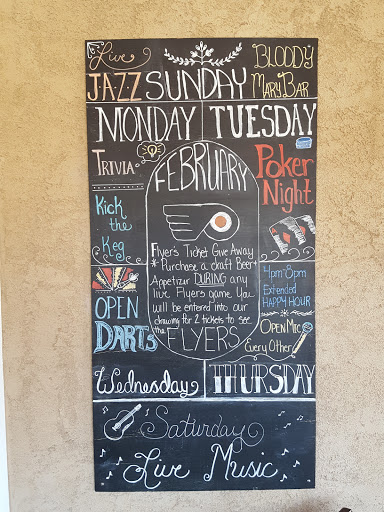 Live
JAZZ SUNDAY
BLOODY
MARY BAR
MONDAY TUESDAY
TRIVIA
Poker
Night
Kick
the
Keg
FEBRUARY
Flyer's Ticket Give Away
* Purchase a draft Beer +
Appetizer DURING any
live Flyers game You
will be entered into our
drawing for 2 tickets to see
the FLYERS
OPEN
DARTS
4pm-8pm
Extended
HAPPY HOUR
OPEN MIC
Every Other
Wednesday THURSDAY
Saturday
Live Music